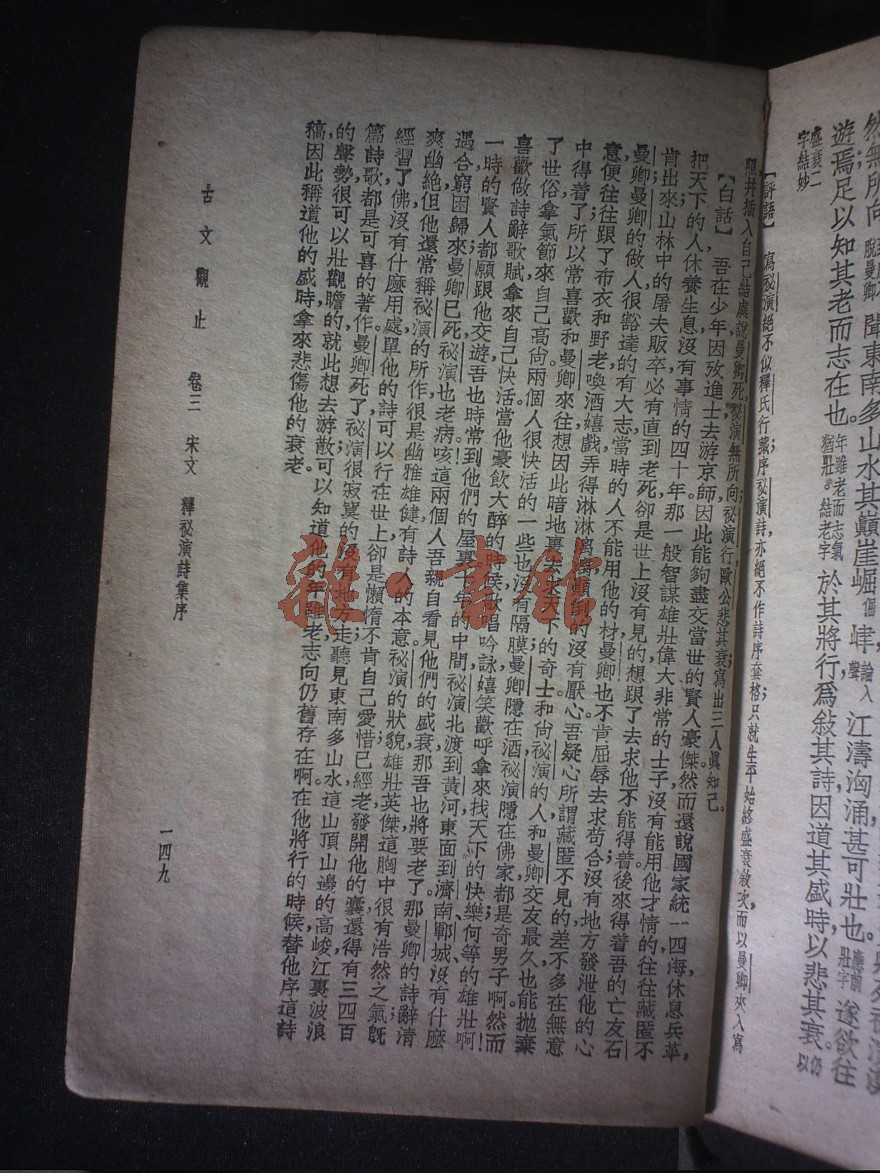 然無所向
脫曼卿
聞東南多山水其巔崖崛
倔
峍
聲
論入
江濤洶涌甚可壯也
應前
壯字
遂欲往
游焉足以知其老而志在也
年雖老而志氣
猶壯。結老字
於其將行爲敍其詩因道其盛時以悲其衰。
仍
以
盛衰二
字結妙
【評語】 寫祕演絕不似釋氏行藏序祕演詩亦絕不作詩序套格只就生平始終盛衰敘次而以曼卿夾入寫
照幷插入自己結處說曼卿死祕演無所向祕演行歐公悲其衰寫出三人眞知己。
【白話】 吾在少年因攷進士去游京師因此能夠盡交當世的賢人豪傑然而還說國家統一四海休息兵革,
把天下的人休養生息沒有事情的四十年那一般智謀雄壯偉大非常的士子沒有能用他才情的往往藏匿不
肯出來山林中的屠夫販卒必有直到老死卻是世上沒有見的想跟了去求他不能得着後來得着吾的亡友石
曼卿曼卿的做人很豁達的有大志當時的人不能用他的材曼卿也不肯屈辱去求苟合沒有地方發泄他的心
意便往往跟了布衣和野老喚酒嬉戲弄得淋淋離離顚顚倒倒的沒有厭心吾疑心所謂藏匿不見的差不多在無意
中得着了所以常喜歡和曼卿來往想因此暗地裏去求天下的奇士和尙祕演的人和曼卿交友最久也能拋棄
了世俗拿氣節來自己高尙兩個人很快活的一些也沒有隔膜曼卿隱在酒祕演隱在佛家都是奇男子啊。然而
喜歡做詩辭歌賦拿來自己快活當他豪飲大醉的時候歌唱吟詠嬉笑歡呼拿來找天下的快樂何等的雄壯啊!
一時的賢人都願跟他交遊吾也時常到他們的屋裏十年的中間祕演北渡到黃河東面到濟南鄆城沒有什麼
遇合窮困歸來曼卿已死祕演也老病咳這兩個人吾親自看見他們的盛衰那吾也將要老了。那曼卿的詩辭清
爽幽絕但他還常稱祕演的所作很是幽雅雄健有詩人的本意祕演的狀貌雄壯英傑這胸中很有浩然之氣旣
經習了佛沒有什麼用處單他的詩可以行在世上卻是懶惰不肯自己愛惜已經老發開他的囊還得有三四百
篇詩歌都是可喜的著作曼卿死了祕演很寂寞的沒有地方走聽見東南多山水這山頂山邊的高峻江裏波浪
的聲勢很可以壯觀瞻的就此想去游散可以知道他的年雖老志向仍舊存在啊。在他將行的時候替他序這詩
稿因此稱道他的盛時拿來悲傷他的衰老。
古文觀止 卷三 宋文 釋祕演詩集序
一四九
雜·書館